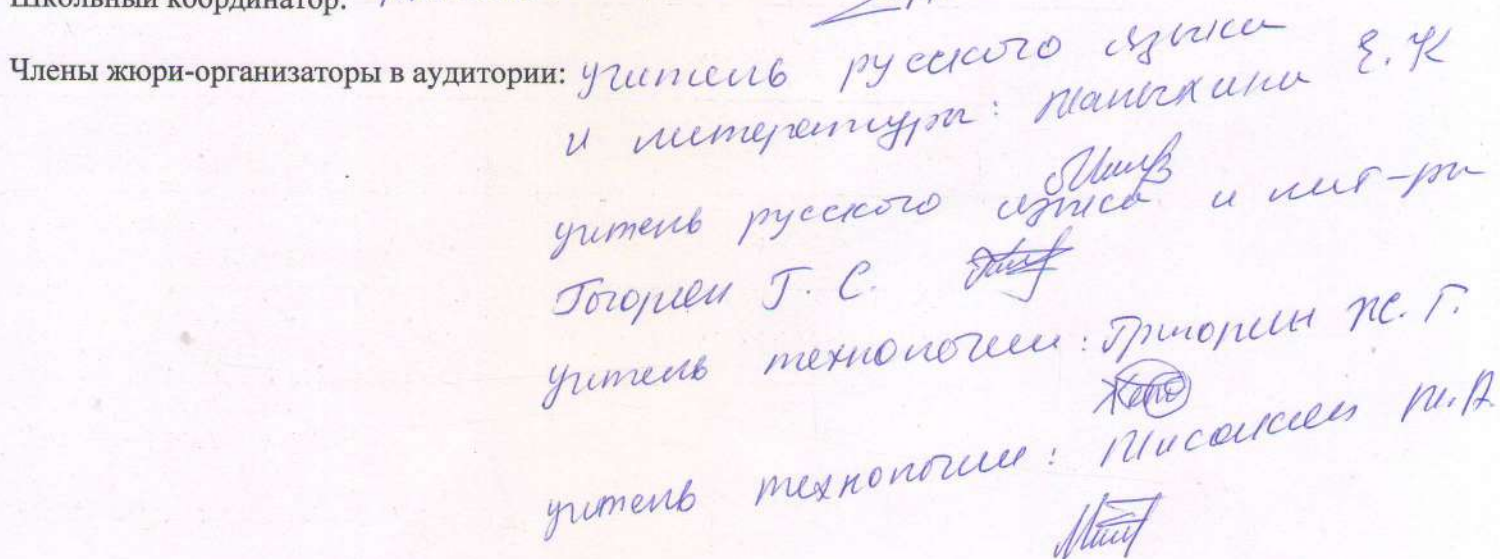 Школьный координатор:
Члены жюри-организаторы в аудитории: учитель русского языка
и литературы: Е. К
учитель русского языка и лит-ры
Г. С.
учитель технологии: Григорян Ж. Г.
учитель технологии: